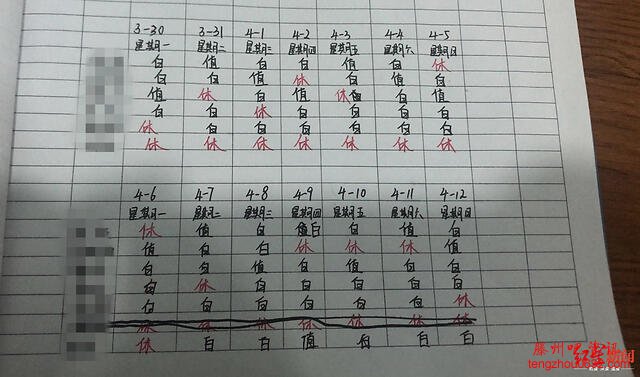 3-30 3-31 4-1 4-2 4-3 4-4 4-5
星期一 星期二 星期三 星期四 星期五 星期六 星期日
白 值 白 白 值 白 休
白 白 值 休 白 值 白
值 休 白 值 休 白 值
白 白 休 白 白 白 白
休 白 白 白 白 白 白
休 休 休 休 休 休 休
4-6 4-7 4-8 4-9 4-10 4-11 4-12
星期一 星期二 星期三 星期四 星期五 星期六 星期日
休 值 白 白 白 值 白
值 白 白 休 休 休 值
白 白 值 白 值 白 白
白 休 白 白 白 白 白
白 白 白 白 白 白 休
休 休 休 休 休 休 休
休 白 白 值 白 白 白
滕州吧资讯
红星新闻
tengzhou0632.com